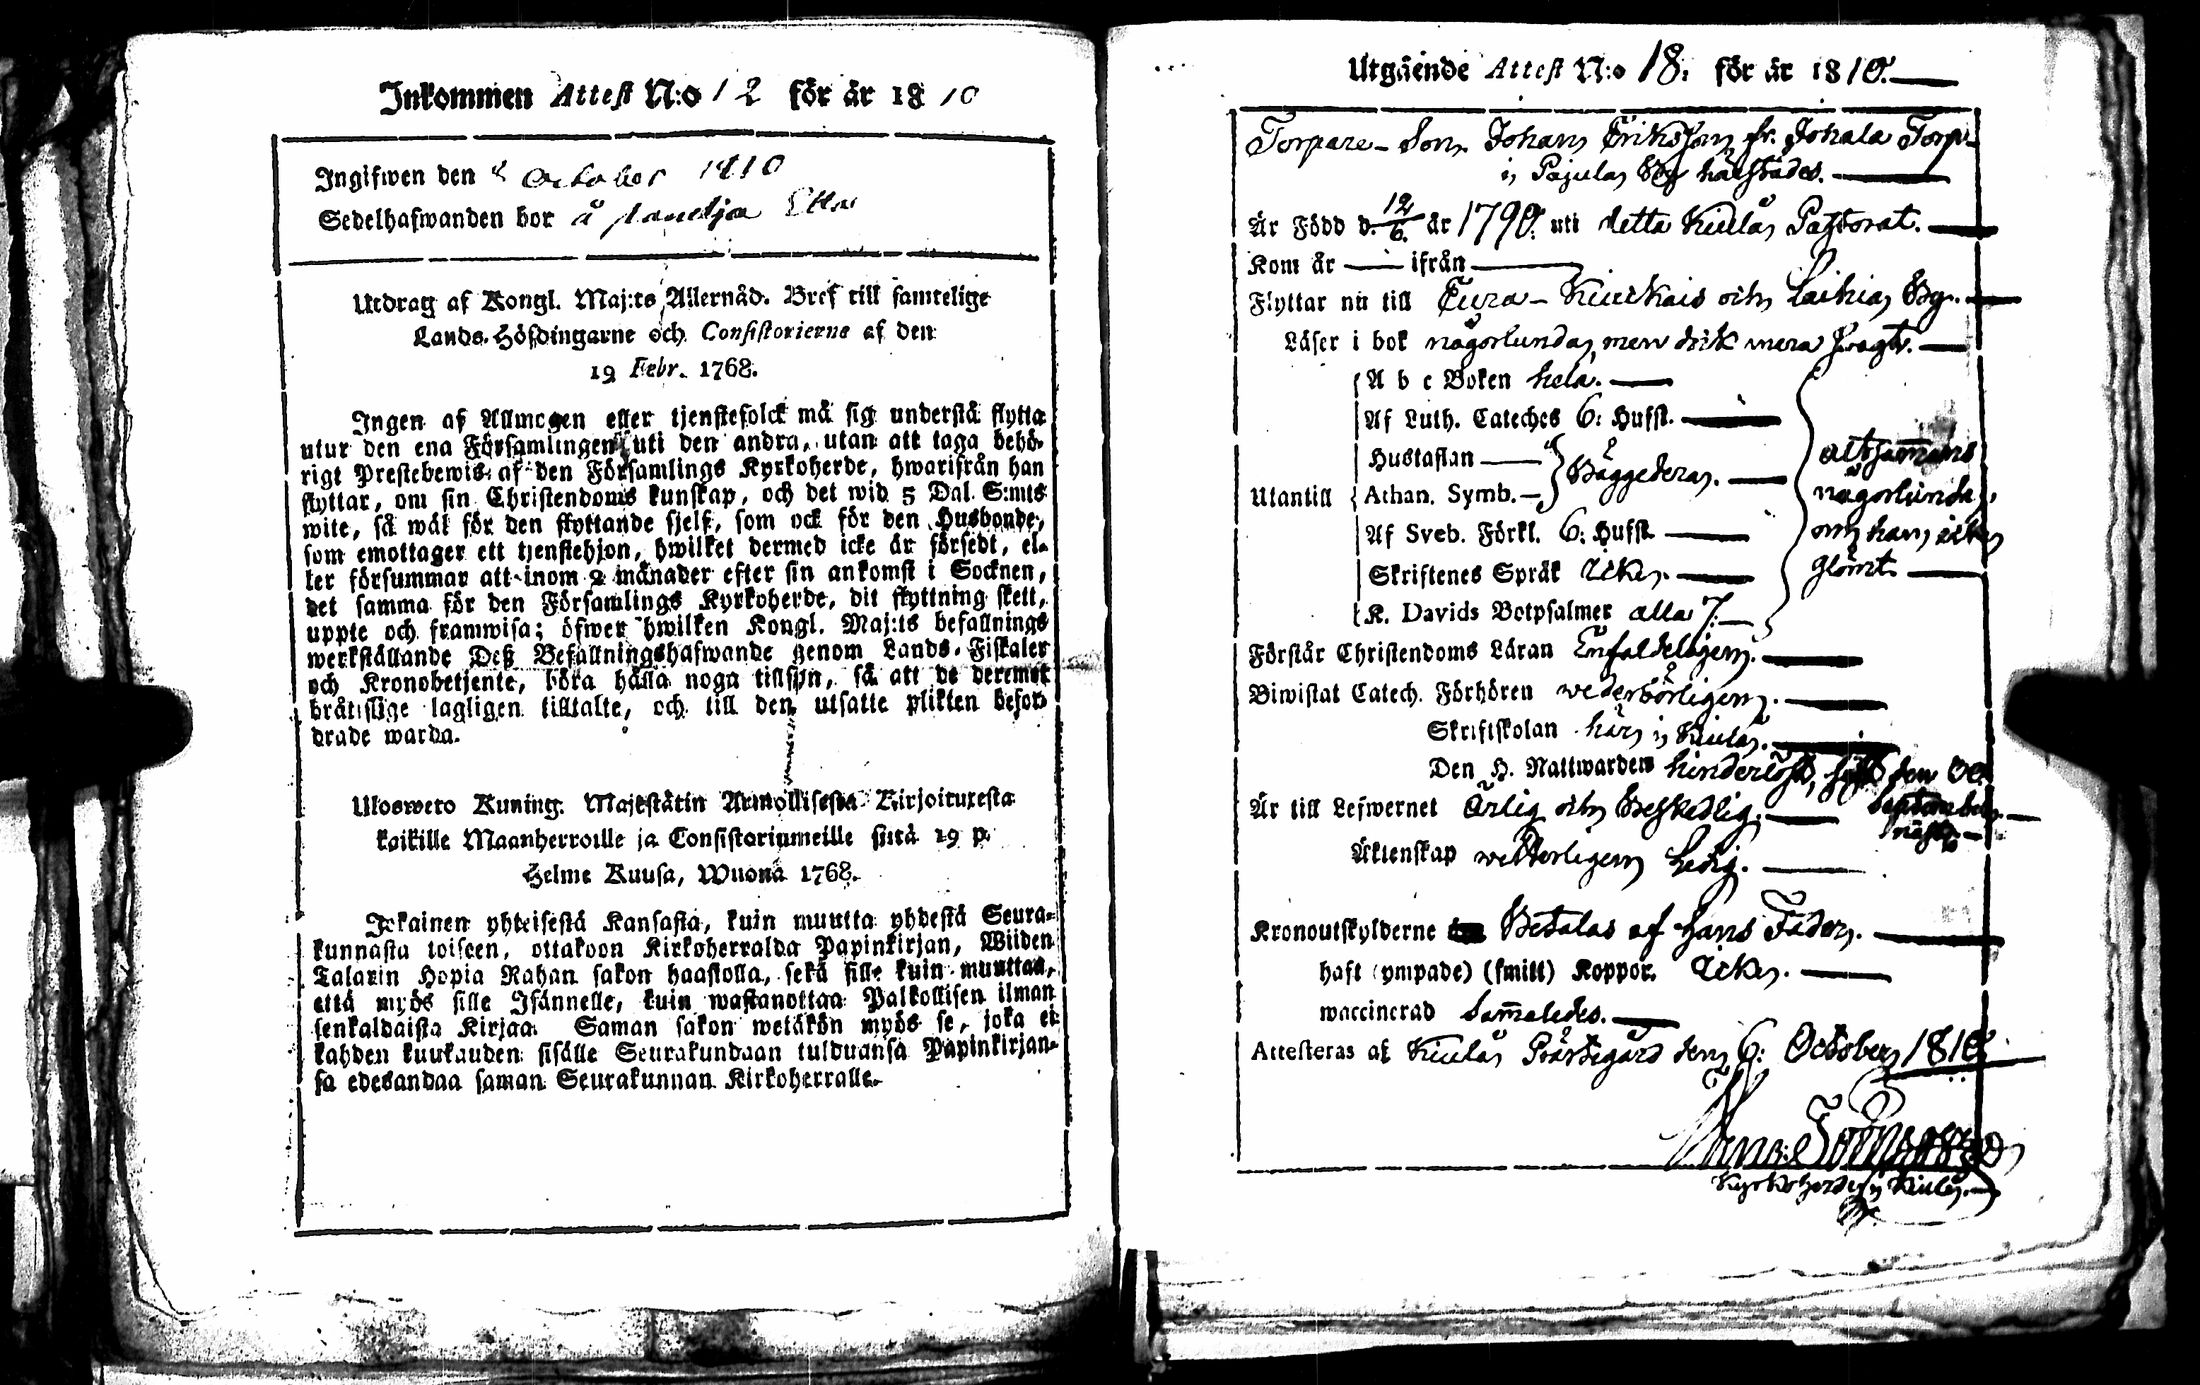 Inkommen Attest N:o 12 för år 1810
Ingifwen den 8 October 1810
Sedelhafwanden bor å
Utdrag af Kongl. Maj:ts Allernåd. Bref till samtelige
Lands-Höfdingarne och Consistorierne af den
19 Febr. 1768.
Ingen af Allmogen eller tjenstefolck må sig understå flytta
utur den ena Församlingen uti den andra, utan att taga behö-
rigt Prestebewis af den Församlings Kyrkoherde, hwarifrån han
flyttar, om sin Christendoms kunskap, och det wid 5 Dal. S:mts
wite, så wäl för den flyttande sjelf, som ock för den Husbonde,
som emottager ett tjenstehjon, hwilket dermed icke är försedt, el-
ler försummar att inom 2 månader efter sin ankomst i Socknen,
det samma för den Församlings Kyrkoherde, dit flyttning skett,
uppte och framwisa; öfwer hwilken Kongl. Maj:ts befallnings
werkställande Deß Befallningshafwande genom Lands-Fiskaler
och Kronobetjente, böra hålla noga tillsyn, så att de deremot
bråtislige lagligen tilltalte, och till den utsatte plikten befor-
drade warda.
Ulosweto Kuning. Majestätin Armollisesta Kirjoituxesta
kaikille Maanherroille ja Consistoriumeille siitä 19 p.
Helme Kuusa, Wuonna 1768.
Jokainen yhteisestä Kansasta, kuin muutta yhdestä Seura-
kunnasta toiseen, ottakoon Kirkoherralda Papinkirjan, Wiiden
Talarin Hopia Rahan sakon haastolla, sekä sille kuin muuttaa,
että myös sille Isännelle, kuin wastanottaa Palkollisen ilman
senkaldaista Kirjaa. Saman sakon wetäkön myös se, joka ei
kahden kuukauden sisälle Seurakundaan tulduansa Papinkirjan-
sa edesandaa saman Seurakunnan Kirkoherralle.
Utgående Attest N:o 18. för år 1810.
Torpare-Son Johan Eriksson fr. Johala Torp
i Pajula By härstädes.
Är Född d. 12/6. år 1790. uti detta Kiulo Pastorat.
Kom år — ifrån —
Flyttar nu till Eura-Kiuckais och Laihia By.
Läser i bok någorlunda, men drik mera
A b c Boken hela.
Af Luth. Cateches 6: Hufst.
Hustaflan
Utantill Athan. Symb. Bäggedera.
Af Sveb. Förkl. 6: Hufst.
Skriftenes Språk Icke.
K. Davids Botpsalmer alla 7.
altsammans
någorlunda,
om han icke
glömt.
Förstår Christendoms Läran Enfaldeligen.
Biwistat Catech. Förhören wederbörligen.
Skriftskolan här i Kiulo.
Den H. Nattwarden hinderlöst, sist den 30
September
näst.
Är till Lefwernet Ärlig och Beskedlig.
Äktenskap witterligen Ledig.
Kronoutskylderne Betalas af hans Fader.
haft (ympade) (smitt) Koppor. Icke.
waccinerad Sammaledes.
Attesteras af Kiulo Prästegård den 6: October 1810.
Kyrkoherde i Kiulo.